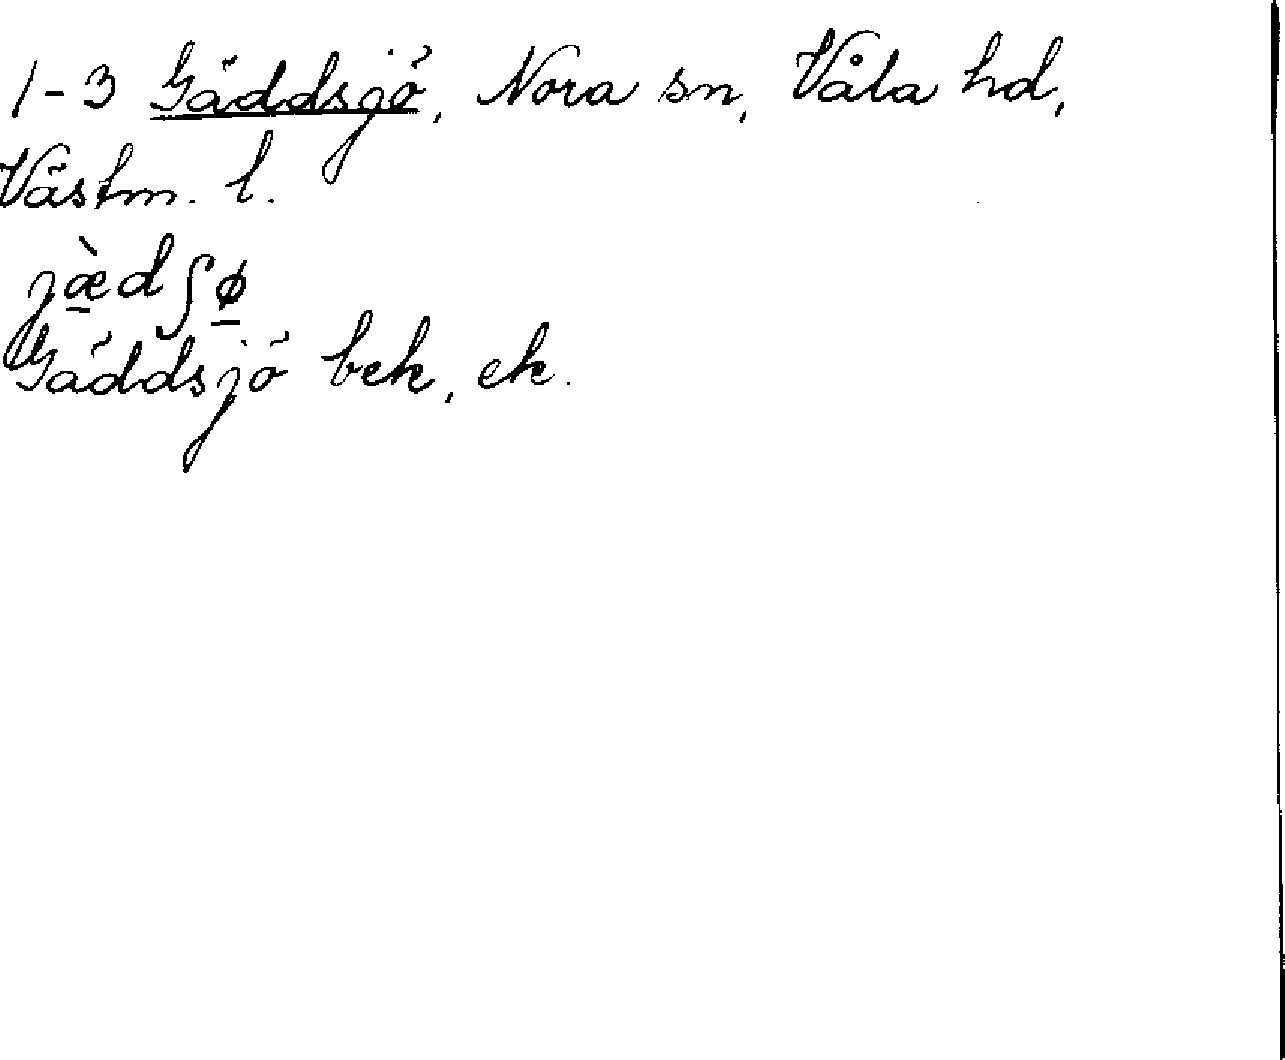 1-3 Gäddsjö, Nora sn, Våla hd,
Västm. l.
jæ̠̀dʃø̠
Gäddsjö bek, ek.